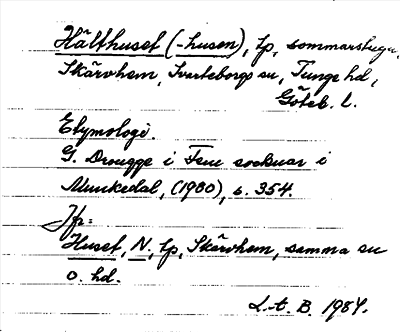 Hälthuset (-husen), tp, sommarstuga,
Skärvhem, Svarteborgs sn, Tunge hd,
Göteb. l.
Etymologi.
G. Drougge i Fem socknar i
Munkedal, (1980), s. 354.
Jfr:
Huset, N., tp, Skärvhem, samma sn
o. hd.
L.t. B. 1984.